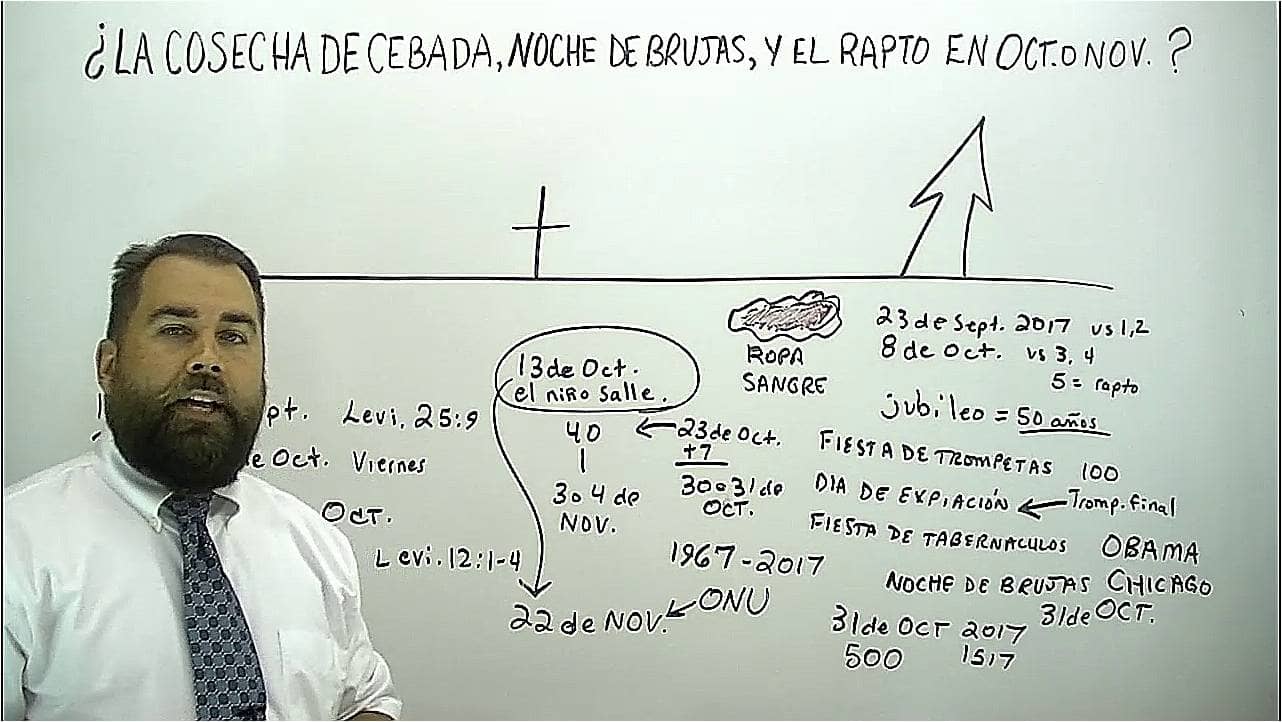 ¿LA COSECHA DE CEBADA, NOCHE DE BRUJAS, Y EL RAPTO EN OCT. O NOV. ?
pt. Levi. 25:9
e Oct. Viernes
OCT.
Levi. 12:1-4
13 de Oct.
el niño Salle.
40
1
3 o 4 de
NOV.
22 de NOV. ← ONU
← 23 de Oct.
+7
30 o 31 de
OCT.
1967-2017
ROPA
SANGRE
23 de Sept. 2017 vs 1,2
8 de Oct. vs 3, 4
5 = rapto
jubileo = 50 años
FIESTA DE TROMPETAS 100
DIA DE EXPIACIÓN ← Tromp. final
FIESTA DE TABERNACULOS OBAMA
NOCHE DE BRUJAS CHICAGO
31 de OCT 2017 31 de OCT.
500 1517